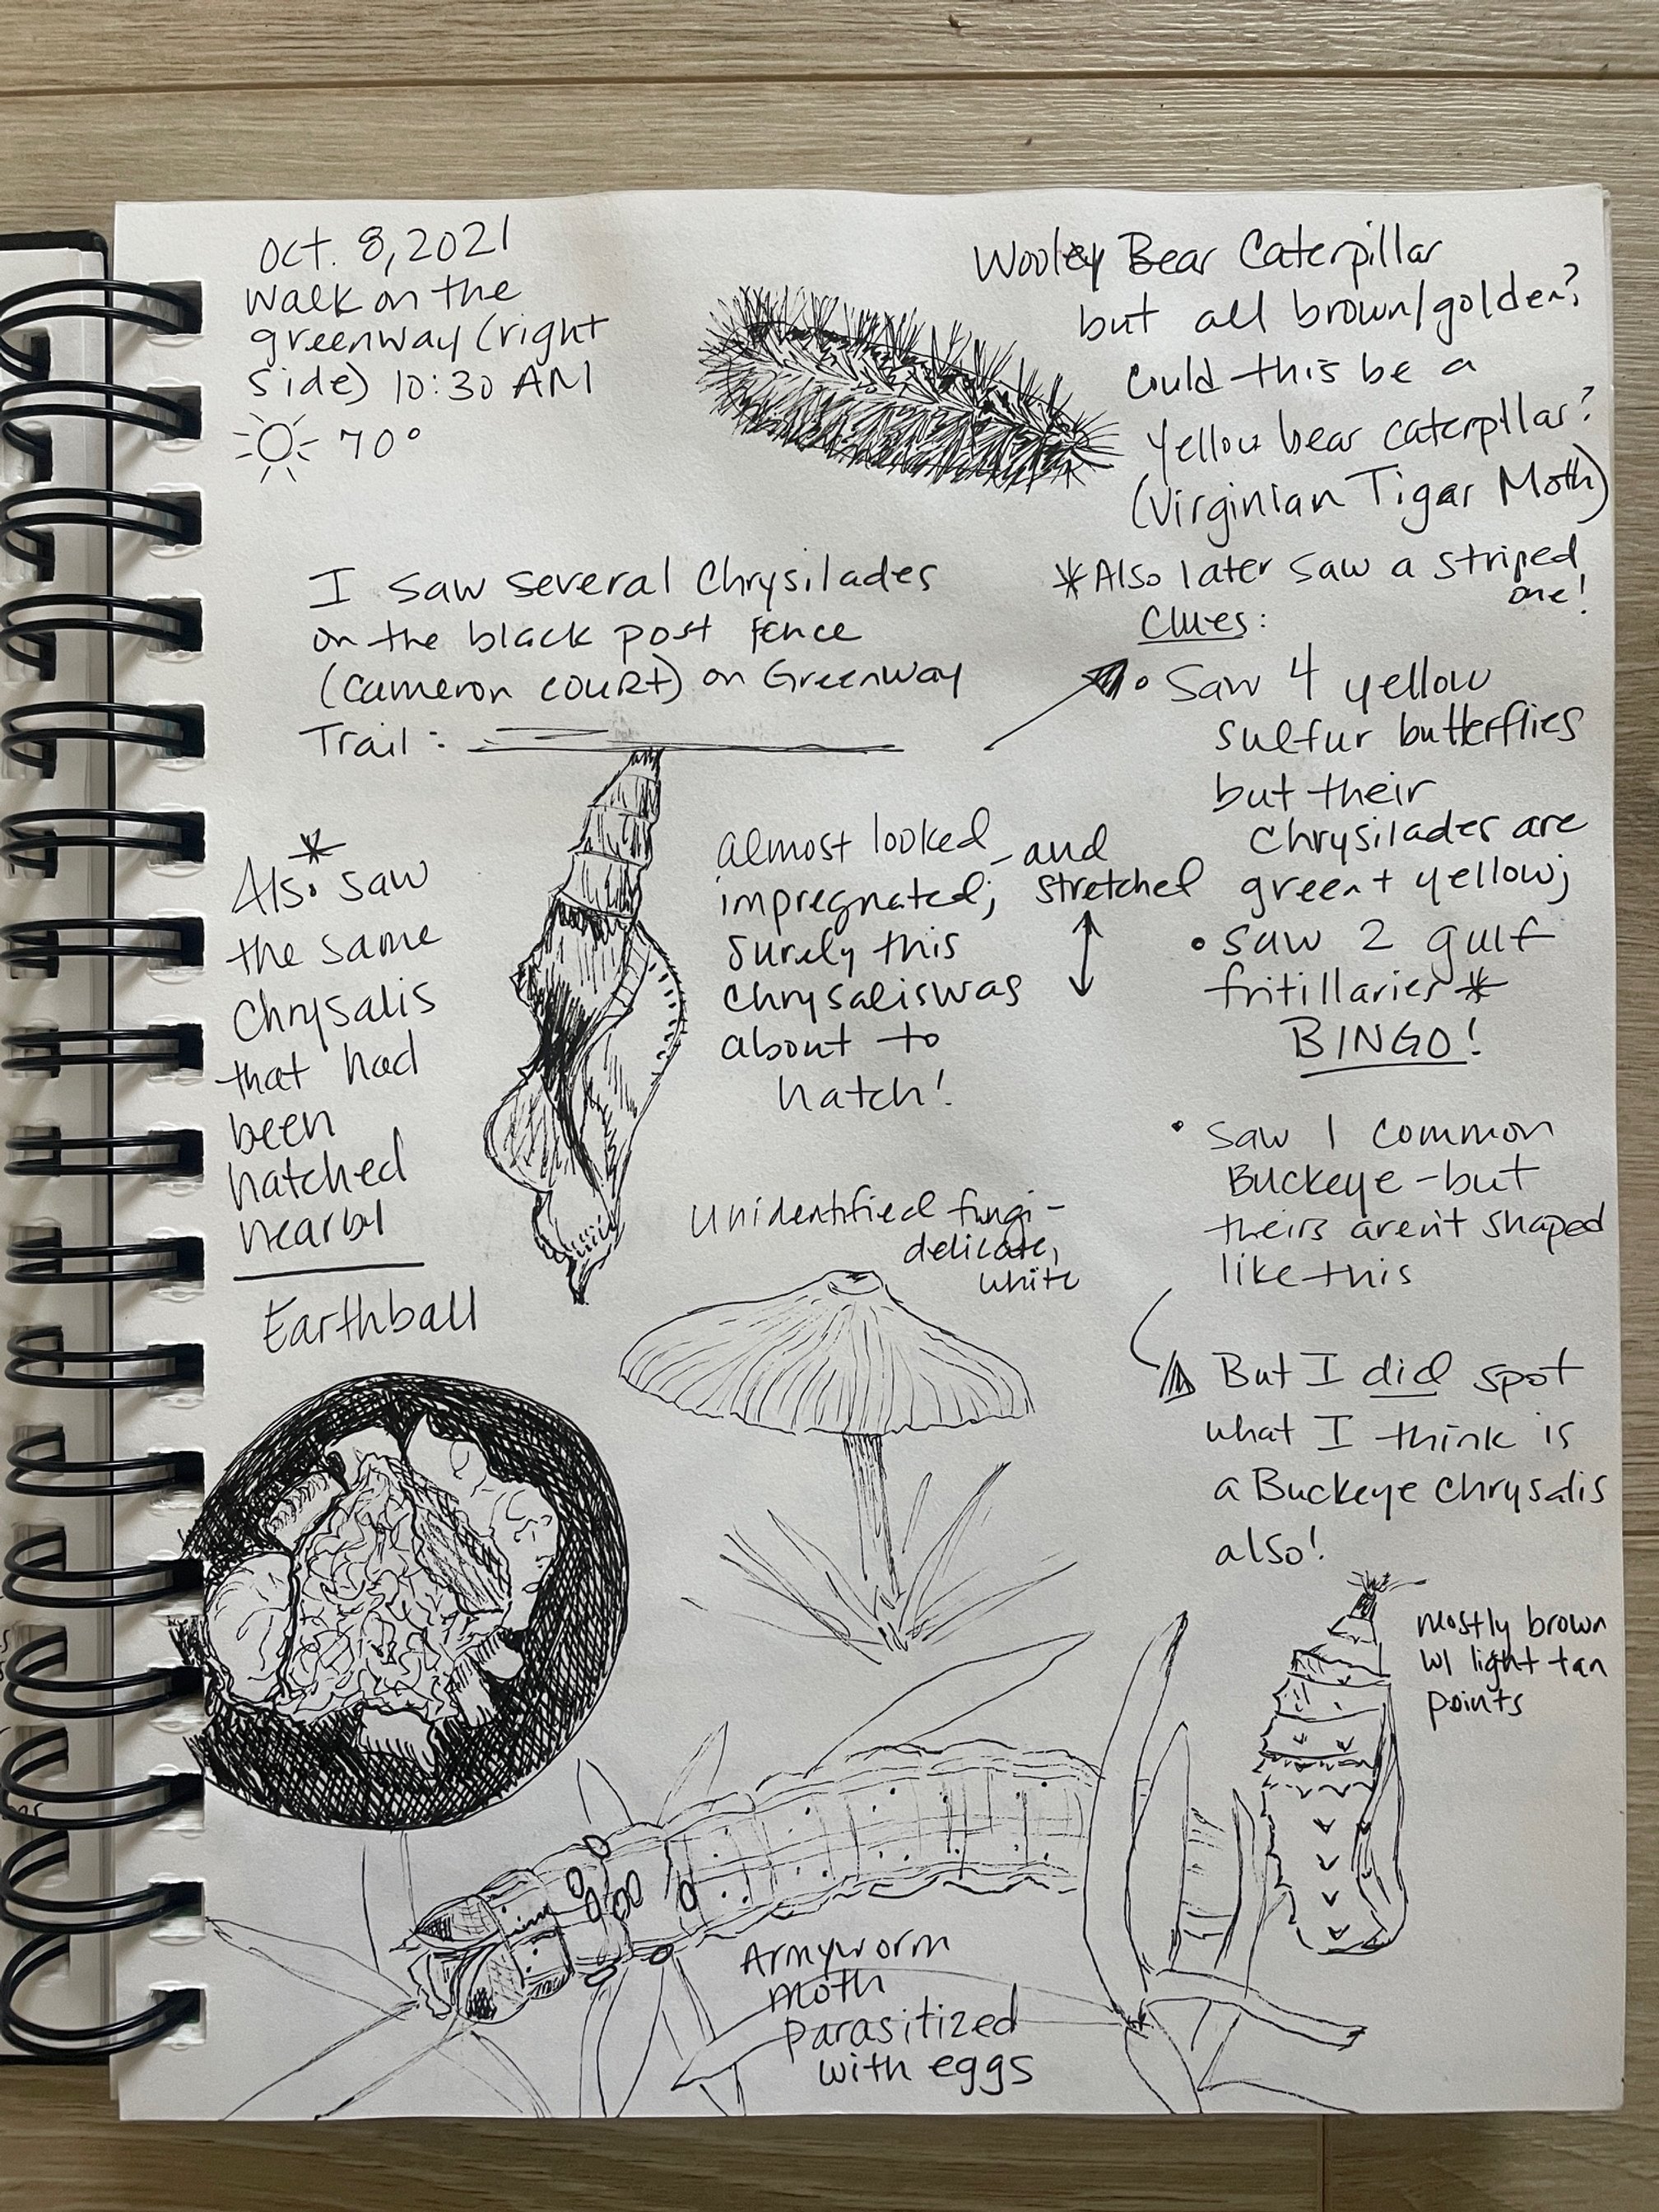 Oct. 8, 2021
Walk on the
greenway (right
side) 10:30 AM
70°
Wooley Bear Caterpillar
but all brown/golden?
Could this be a
yellow bear caterpillar?
(Virginian Tiger Moth)
*Also later saw a striped
one!
I saw several Chrysilades
on the black post fence
(Cameron Court) on Greenway
Trail:
Clues:
• Saw 4 yellow
sulfur butterflies
but their
Chrysilades are
green + yellow;
• Saw 2 gulf
fritillaries *
BINGO!
• Saw 1 common
Buckeye - but
theirs aren't shaped
like this
But I did spot
what I think is
a Buckeye Chrysalis
also!
mostly brown
w/ light tan
points
almost looked - and
impregnated; stretched
surely this
chrysalis was
about to
hatch!
*
Also saw
the same
Chrysalis
that had
been
hatched
nearby
Unidentified fungi -
delicate,
white
Earthball
Armyworm
moth
parasitized
with eggs